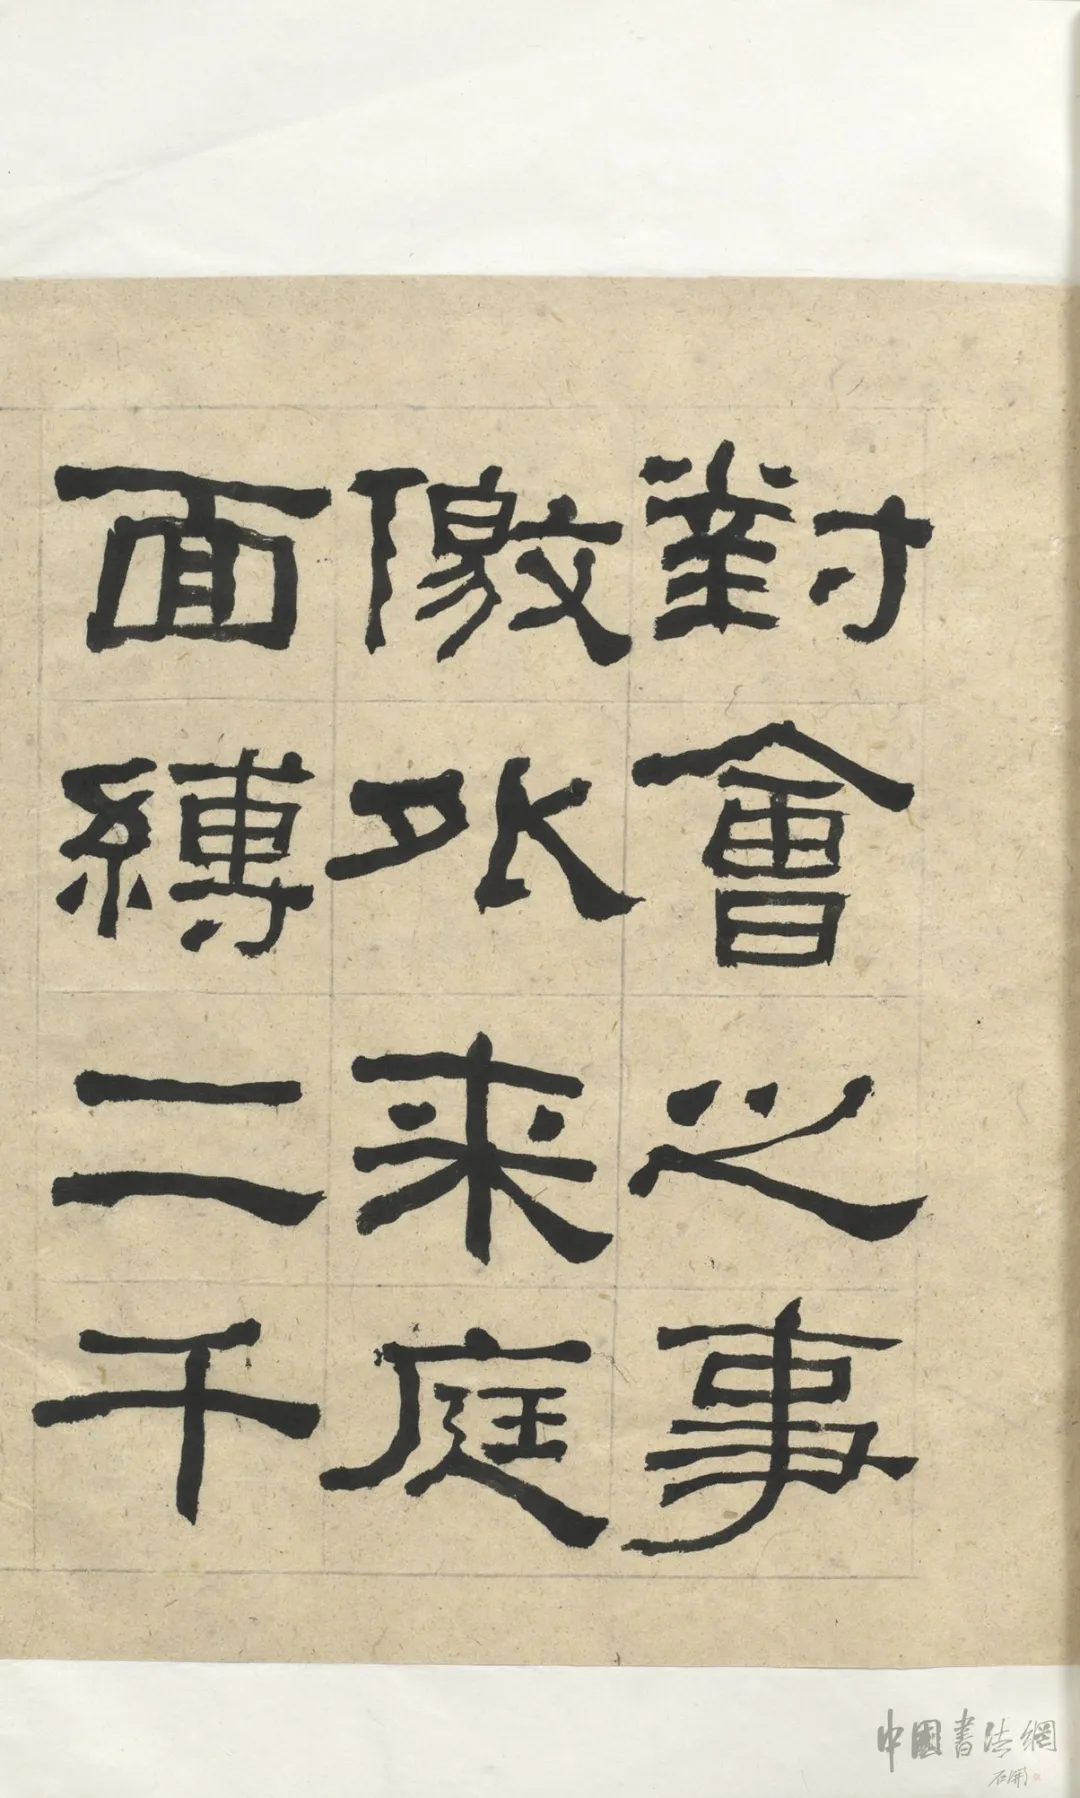 對會之事
儌外来庭
面縛二千
中國書法網
石開